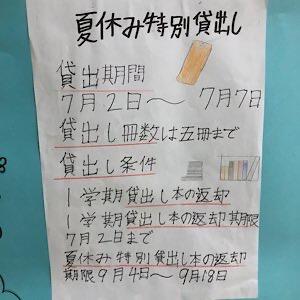 夏休み特別貸出し
貸出期間
7月2日〜7月7日
貸出し冊数は五冊まで
貸出し条件
1学期貸出し本の返却
1学期貸出し本の返却期限
7月2日まで
夏休み特別貸出し本の返却
期限9月4日〜9月18日